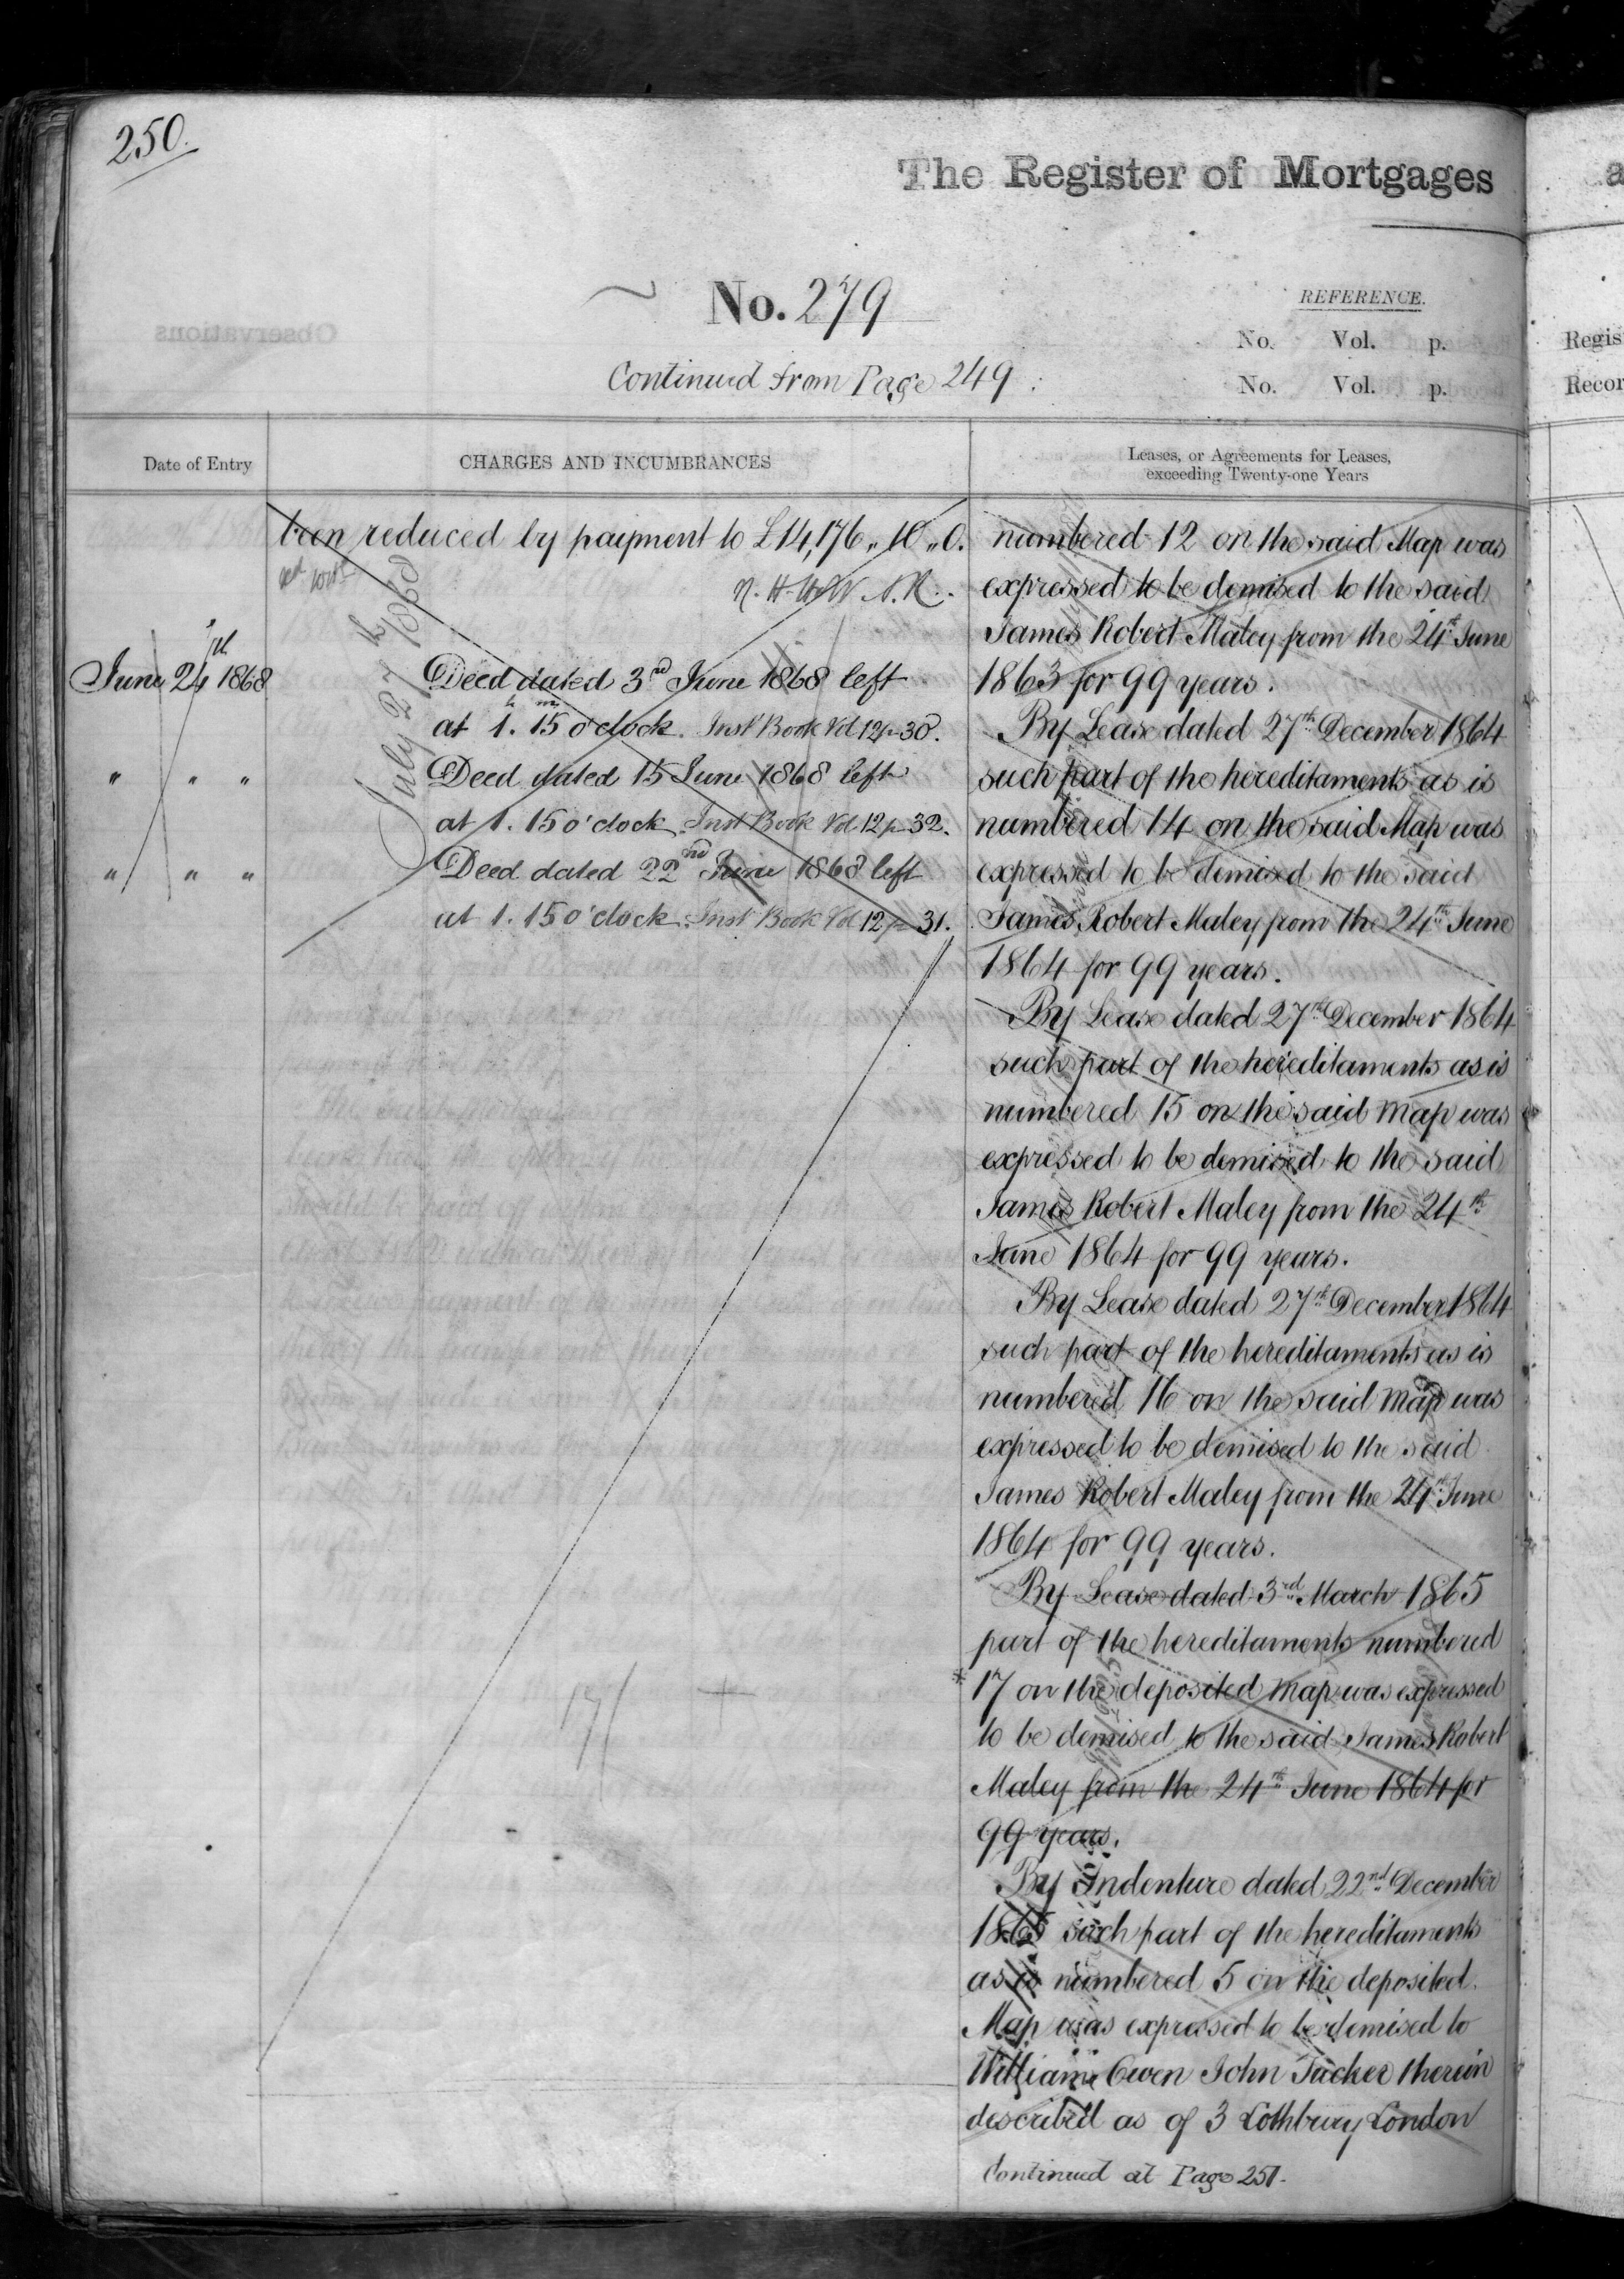 250.
The Register of Mortgages
No. 279
REFERENCE.
No. Vol. p.
Continued from Page 249.
No. Vol. p.
Date of Entry
CHARGES AND INCUMBRANCES
Leases, or Agreements for Leases,
exceeding Twenty-one Years
been reduced by payment to £14,176 „ 10 „ 0.
July 27th 1868
June 24th 1868
Deed dated 3rd June 1868 left
at 1h. 15m o'clock. Inst Book Vol 12 p 30.
" " "
Deed dated 15 June 1868 left
at 1. 15 o'clock. Inst Book Vol 12 p 32.
" " "
Deed dated 22nd June 1868 left
at 1. 15 o'clock. Inst Book Vol 12 p 31.
numbered 12 on the said Map was
expressed to be demised to the said
James Robert Maley from the 24th June
1863 for 99 years.
By Lease dated 27th December 1864
such part of the hereditaments as is
numbered 14 on the said Map was
expressed to be demised to the said
James Robert Maley from the 24th June
1864 for 99 years.
By Lease dated 27th December 1864
such part of the hereditaments as is
numbered 15 on the said Map was
expressed to be demised to the said
James Robert Maley from the 24th
June 1864 for 99 years.
By Lease dated 27th December 1864
such part of the hereditaments as is
numbered 16 on the said Map was
expressed to be demised to the said
James Robert Maley from the 24th June
1864 for 99 years.
By Lease dated 3rd March 1865
part of the hereditaments numbered
* 17 on the deposited Map was expressed
to be demised to the said James Robert
Maley from the 24th June 1864 for
99 years.
By Indenture dated 22nd December
1865 such part of the hereditaments
as is numbered 5 on the deposited
Map was expressed to be demised to
William Owen John Tucker therein
described as of 3 Lothbury London
Continued at Page 251.
Regis
Recor